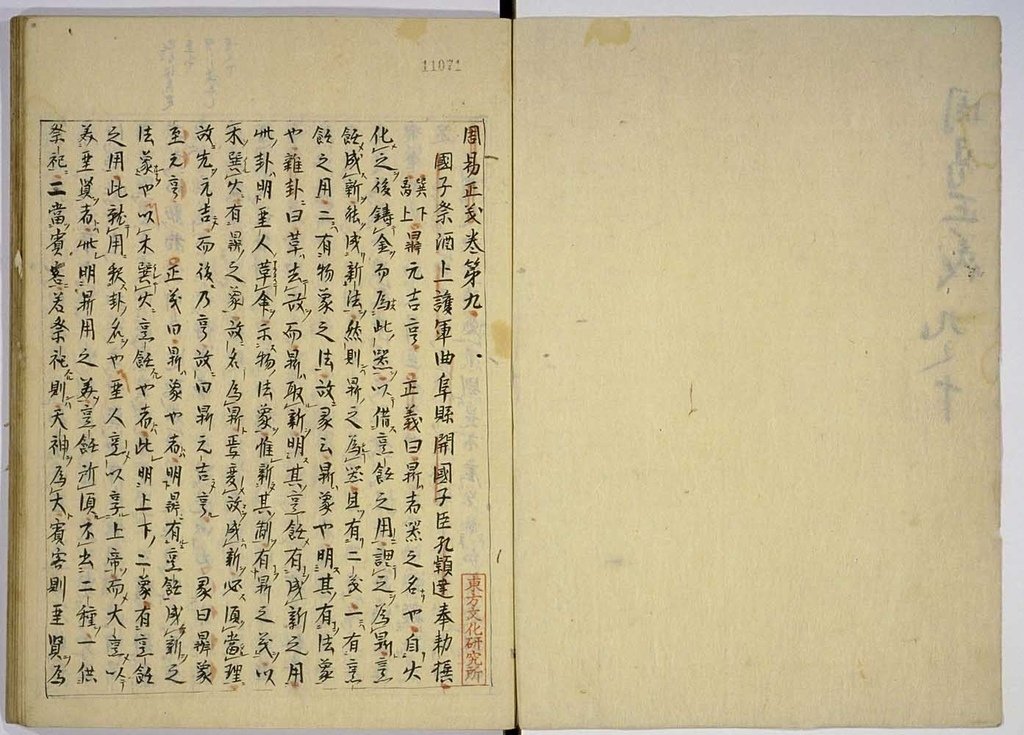 11071
周易正義卷第九
國子祭酒上護軍曲阜縣開國子臣孔穎達奉勅撰
巽下離上鼎元吉亨 正義曰鼎者器之名也自火
化之後鑄金而爲此器以供烹飪之用謂之爲鼎烹
飪成新能成新法然則鼎之爲器且有二義一有烹
飪之用二有物象之法故彖云鼎象也明其有法象
也雜卦曰革去故而鼎取新明其烹飪有成新之用
此卦明聖人革命示物法象惟新其制有鼎之義以
木巽火有鼎之象故名爲鼎焉変故成新必須當理
故先元吉而後乃亨故曰鼎元吉亨 彖曰鼎象
至元亨 正義曰鼎象也者明鼎有烹飪成新之
法象也以木巽火烹飪也者此明上下二象有烹飪
之用此就用釈卦名也聖人亨以享上帝而大亨以
養聖賢者此明鼎用之美烹飪所須不出二種一供
祭祀二當賓客若祭祀則天神爲大賓客則聖賢爲
東方文化研究所